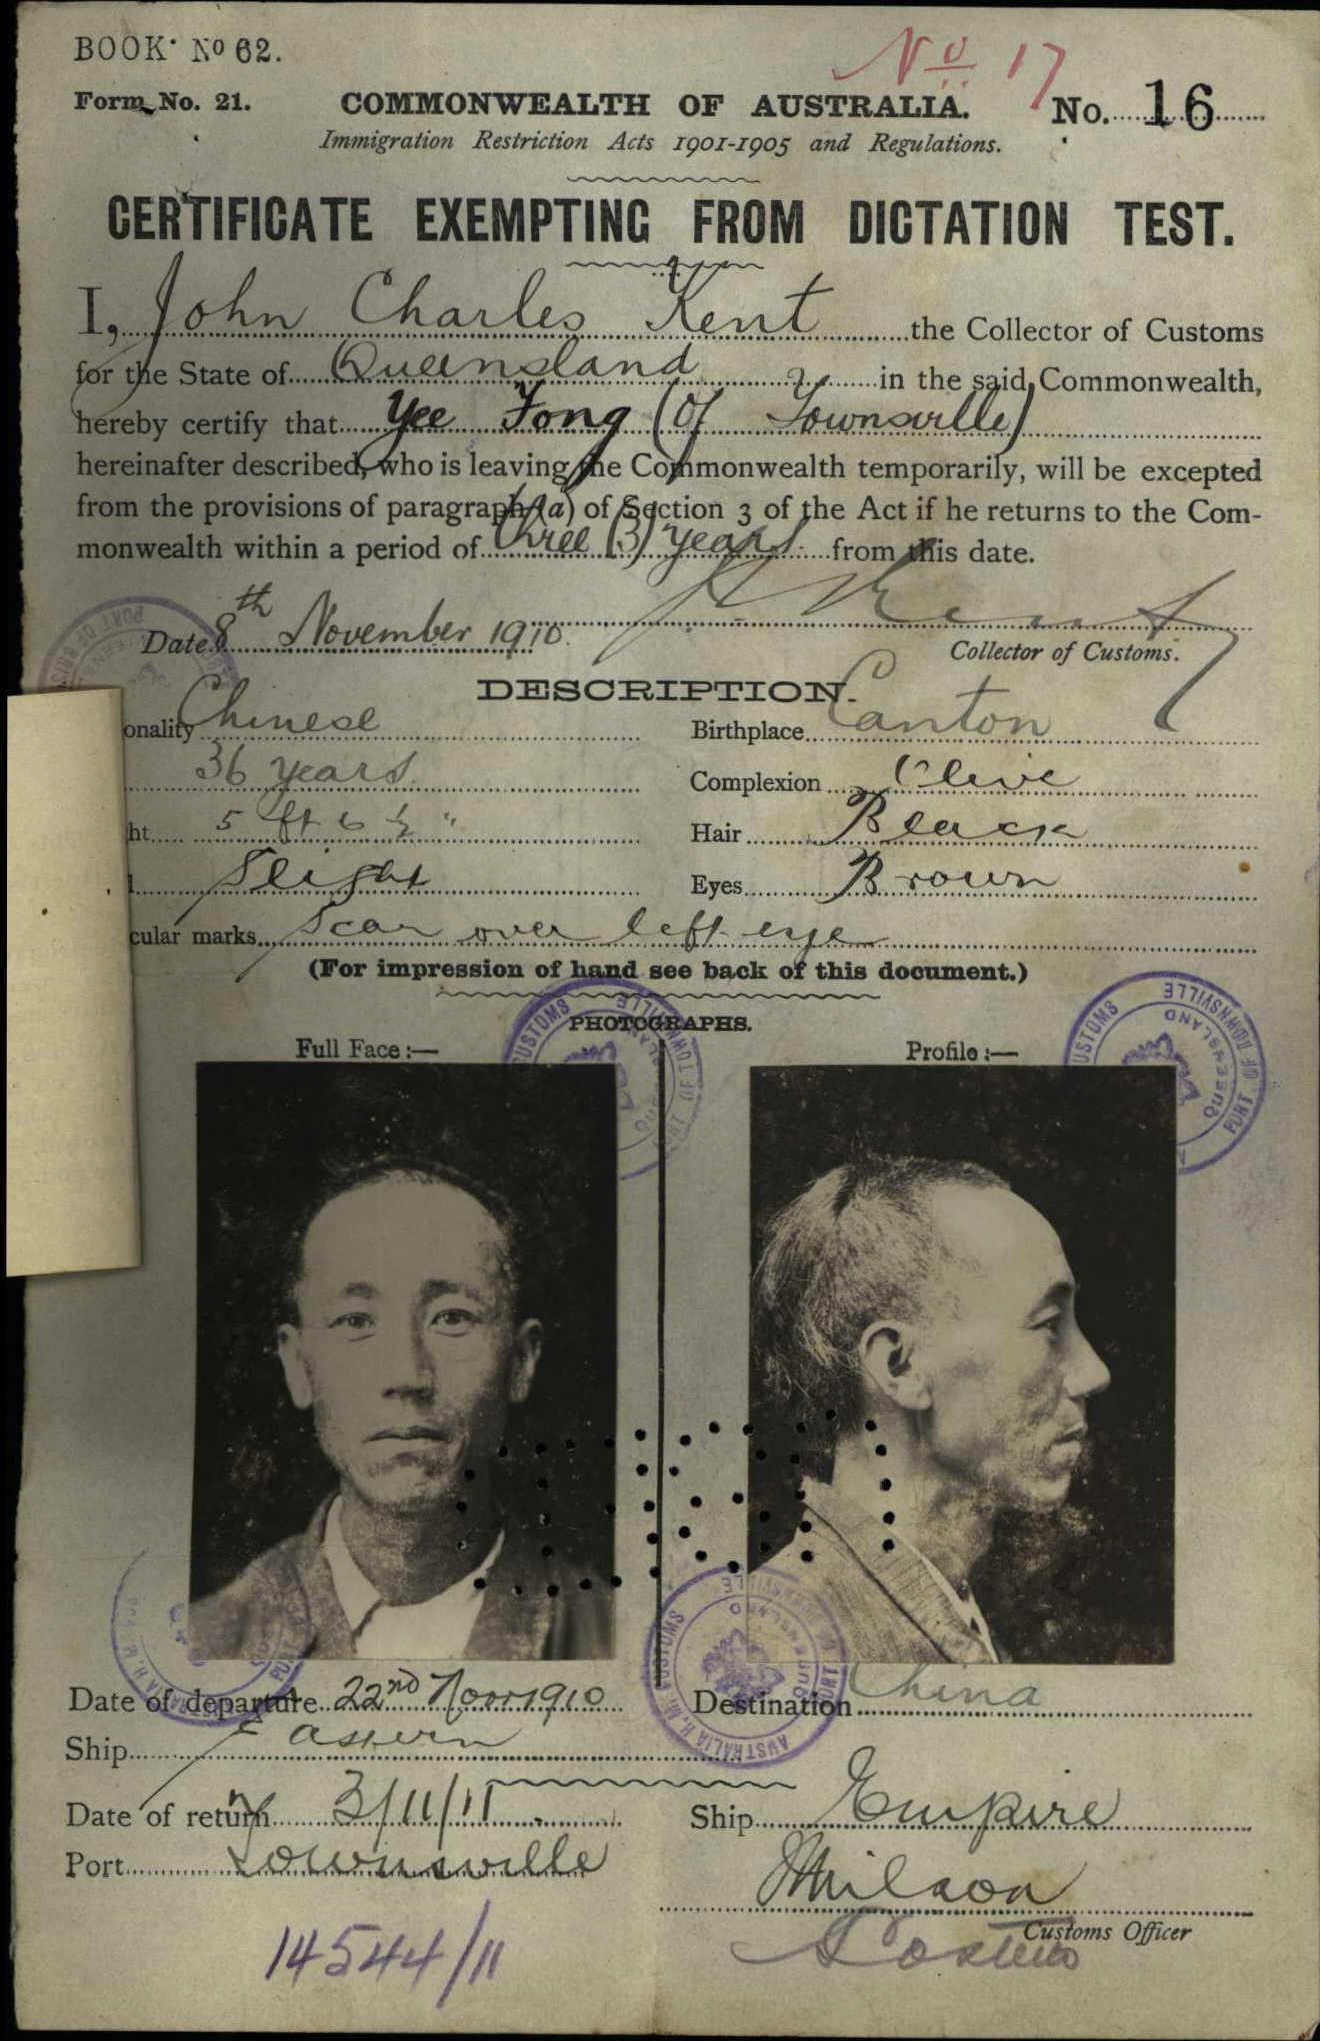 BOOK· No 62.
No 17
Form No. 21.
COMMONWEALTH OF AUSTRALIA.
No. 16
Immigration Restriction Acts 1901-1905 and Regulations.
CERTIFICATE EXEMPTING FROM DICTATION TEST.
I, John Charles Kent the Collector of Customs
for the State of Queensland in the said Commonwealth,
hereby certify that Yee Fong (of Townsville)
hereinafter described, who is leaving the Commonwealth temporarily, will be excepted
from the provisions of paragraph (a) of Section 3 of the Act if he returns to the Com-
monwealth within a period of three (3) years from this date.
Date 8th November 1910.
Collector of Customs.
DESCRIPTION.
onality Chinese
Birthplace Canton
36 years
Complexion Olive
ht 5 ft 6 ½"
Hair Black
Slight
Eyes Brown
cular marks Scar over left eye
(For impression of hand see back of this document.)
PHOTOGRAPHS.
Full Face :—
Profile :—
CUSTOMS TOWNSVILLE
CUSTOMS PORT OF TOWNSVILLE QUEENSLAND
AUSTRALIA H.M. CUSTOMS TOWNSVILLE QUEENSLAND
Date of departure 22nd Novr 1910
Destination China
Ship Eastern
Date of return 3/11/11
Ship Empire
Port Townsville
Customs Officer
14544/11